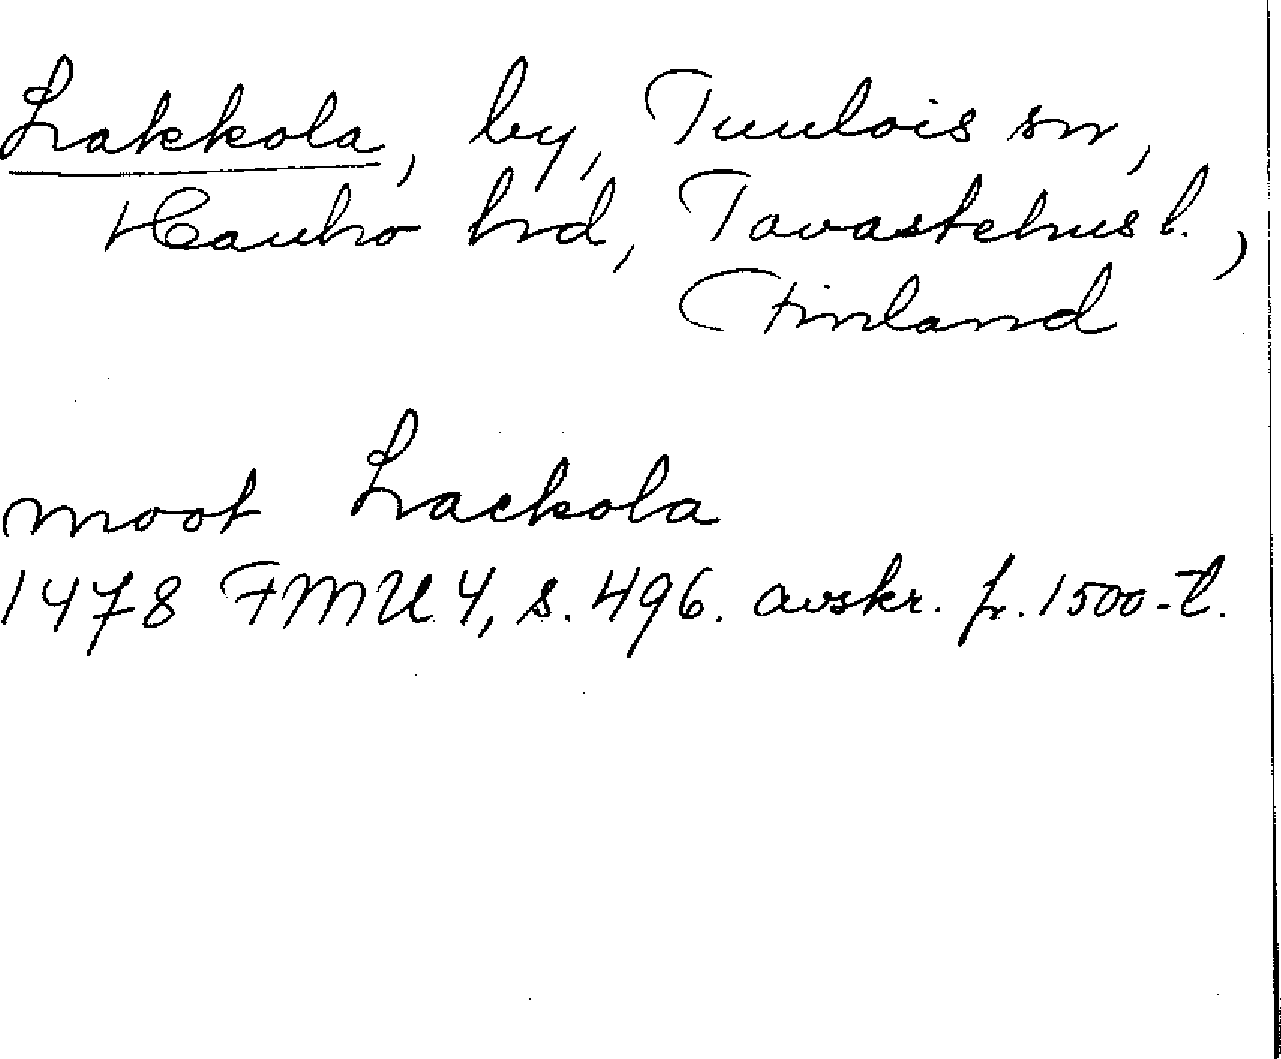 Lakkola, by, Tuulois sn,
Hauho hrd, Tavastehus l.,
Finland
moot Lackola
1478 FMU 4, s. 496. avskr. fr. 1500-t.